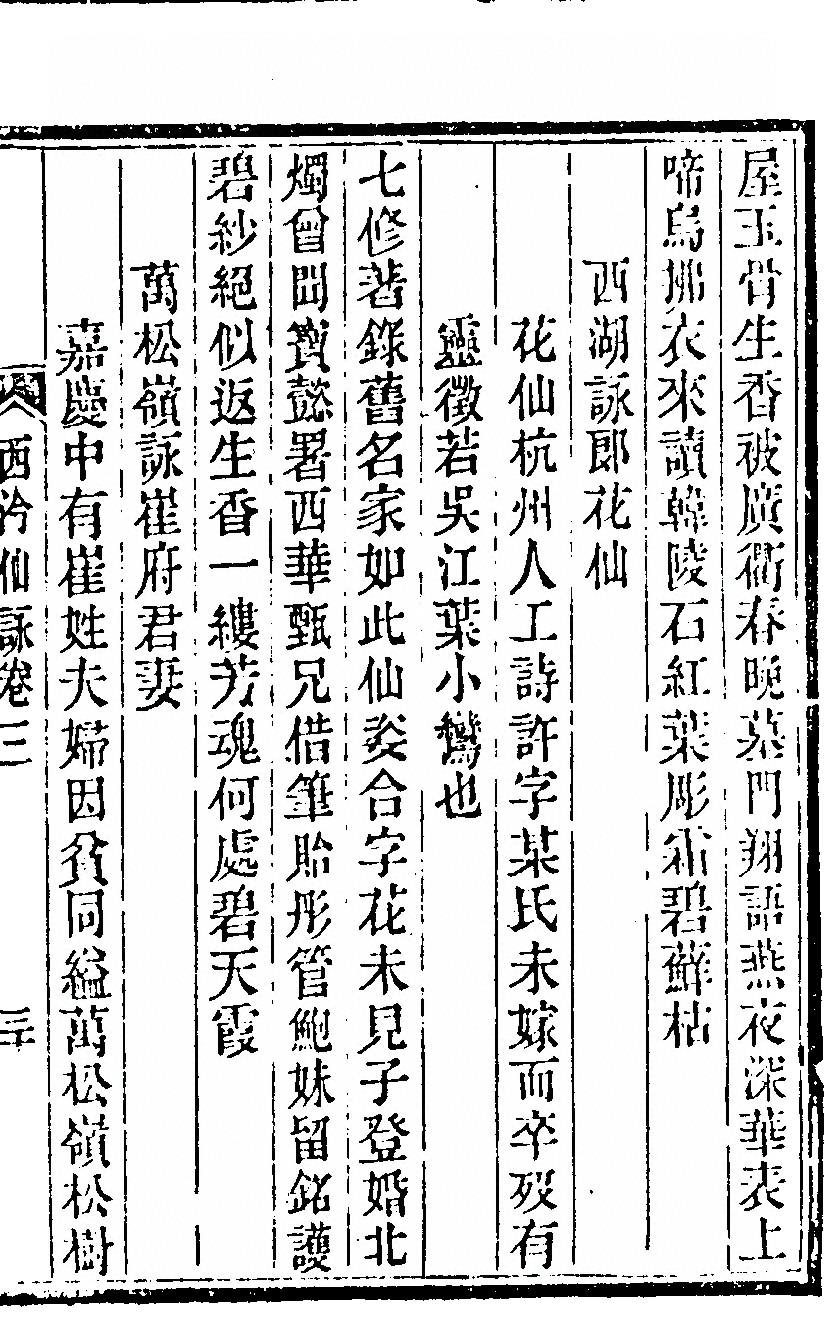 屋玉骨生香被廣衢春晚墓門翔語燕夜深華表上
啼烏拂衣來讀韓陵石紅葉彫霜碧蘚枯
西湖詠郎花仙
花仙杭州人工詩許字某氏未嫁而卒歿有
靈徵若吳江葉小鸞也
七修著錄舊名家如此仙姿合字花未見子登婚北
燭曾聞寶懿署西華甄兄借筆貽彤管鮑妹留銘護
碧紗絕似返生香一縷芳魂何處碧天霞
萬松嶺詠崔府君妻
嘉慶中有崔姓夫婦因貧同縊萬松嶺松樹
西泠仙詠卷三